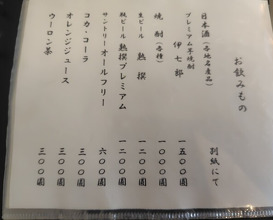 お飲みもの
日本酒(各地名産品) 別紙にて
プレミアム芋焼酎
伊七郎 一五〇〇圓
焼酎(各種) 一〇〇〇圓
生ビール 熟撰 一二〇〇圓
瓶ビール 熟撰プレミアム 一二〇〇圓
サントリーオールフリー 六〇〇圓
コカ・コーラ 三〇〇圓
オレンジジュース 三〇〇圓
ウーロン茶 三〇〇圓